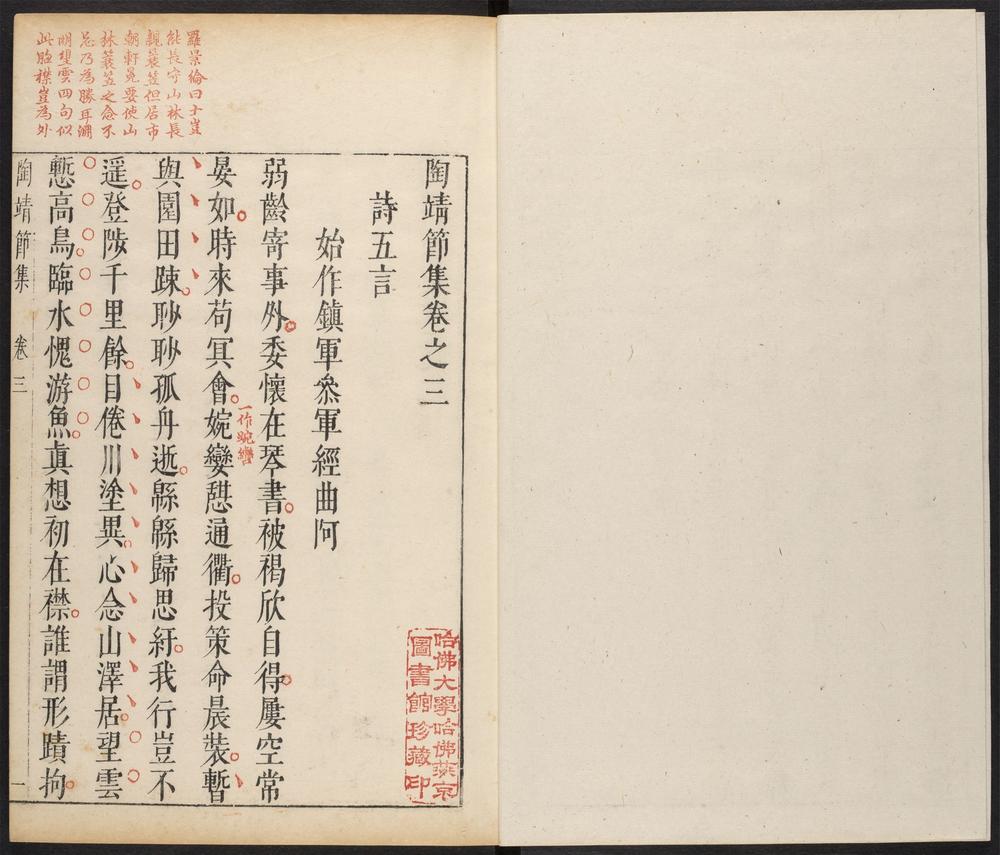 羅景綸曰士豈
能長守山林長
親蓑笠但居市
朝軒冕要使山
林蓑笠之念不
忘乃為勝耳淵
明望雲四句似
此胸襟豈為外
陶靖節集卷之三
詩五言
始作鎮軍叅軍經曲阿
弱齡寄事外委懷在琴書被褐欣自得屢空常
晏如時來苟冥會婉孌憇通衢投策命晨裝暫
一作踠轡
與園田踈眇眇孤舟逝緜緜歸思紆我行豈不
遥登陟千里餘目倦川塗異心念山澤居望雲
慙高鳥臨水愧游魚真想初在襟誰謂形蹟拘
陶靖節集 卷三 一
哈佛大學哈佛燕京
圖書館珍藏印